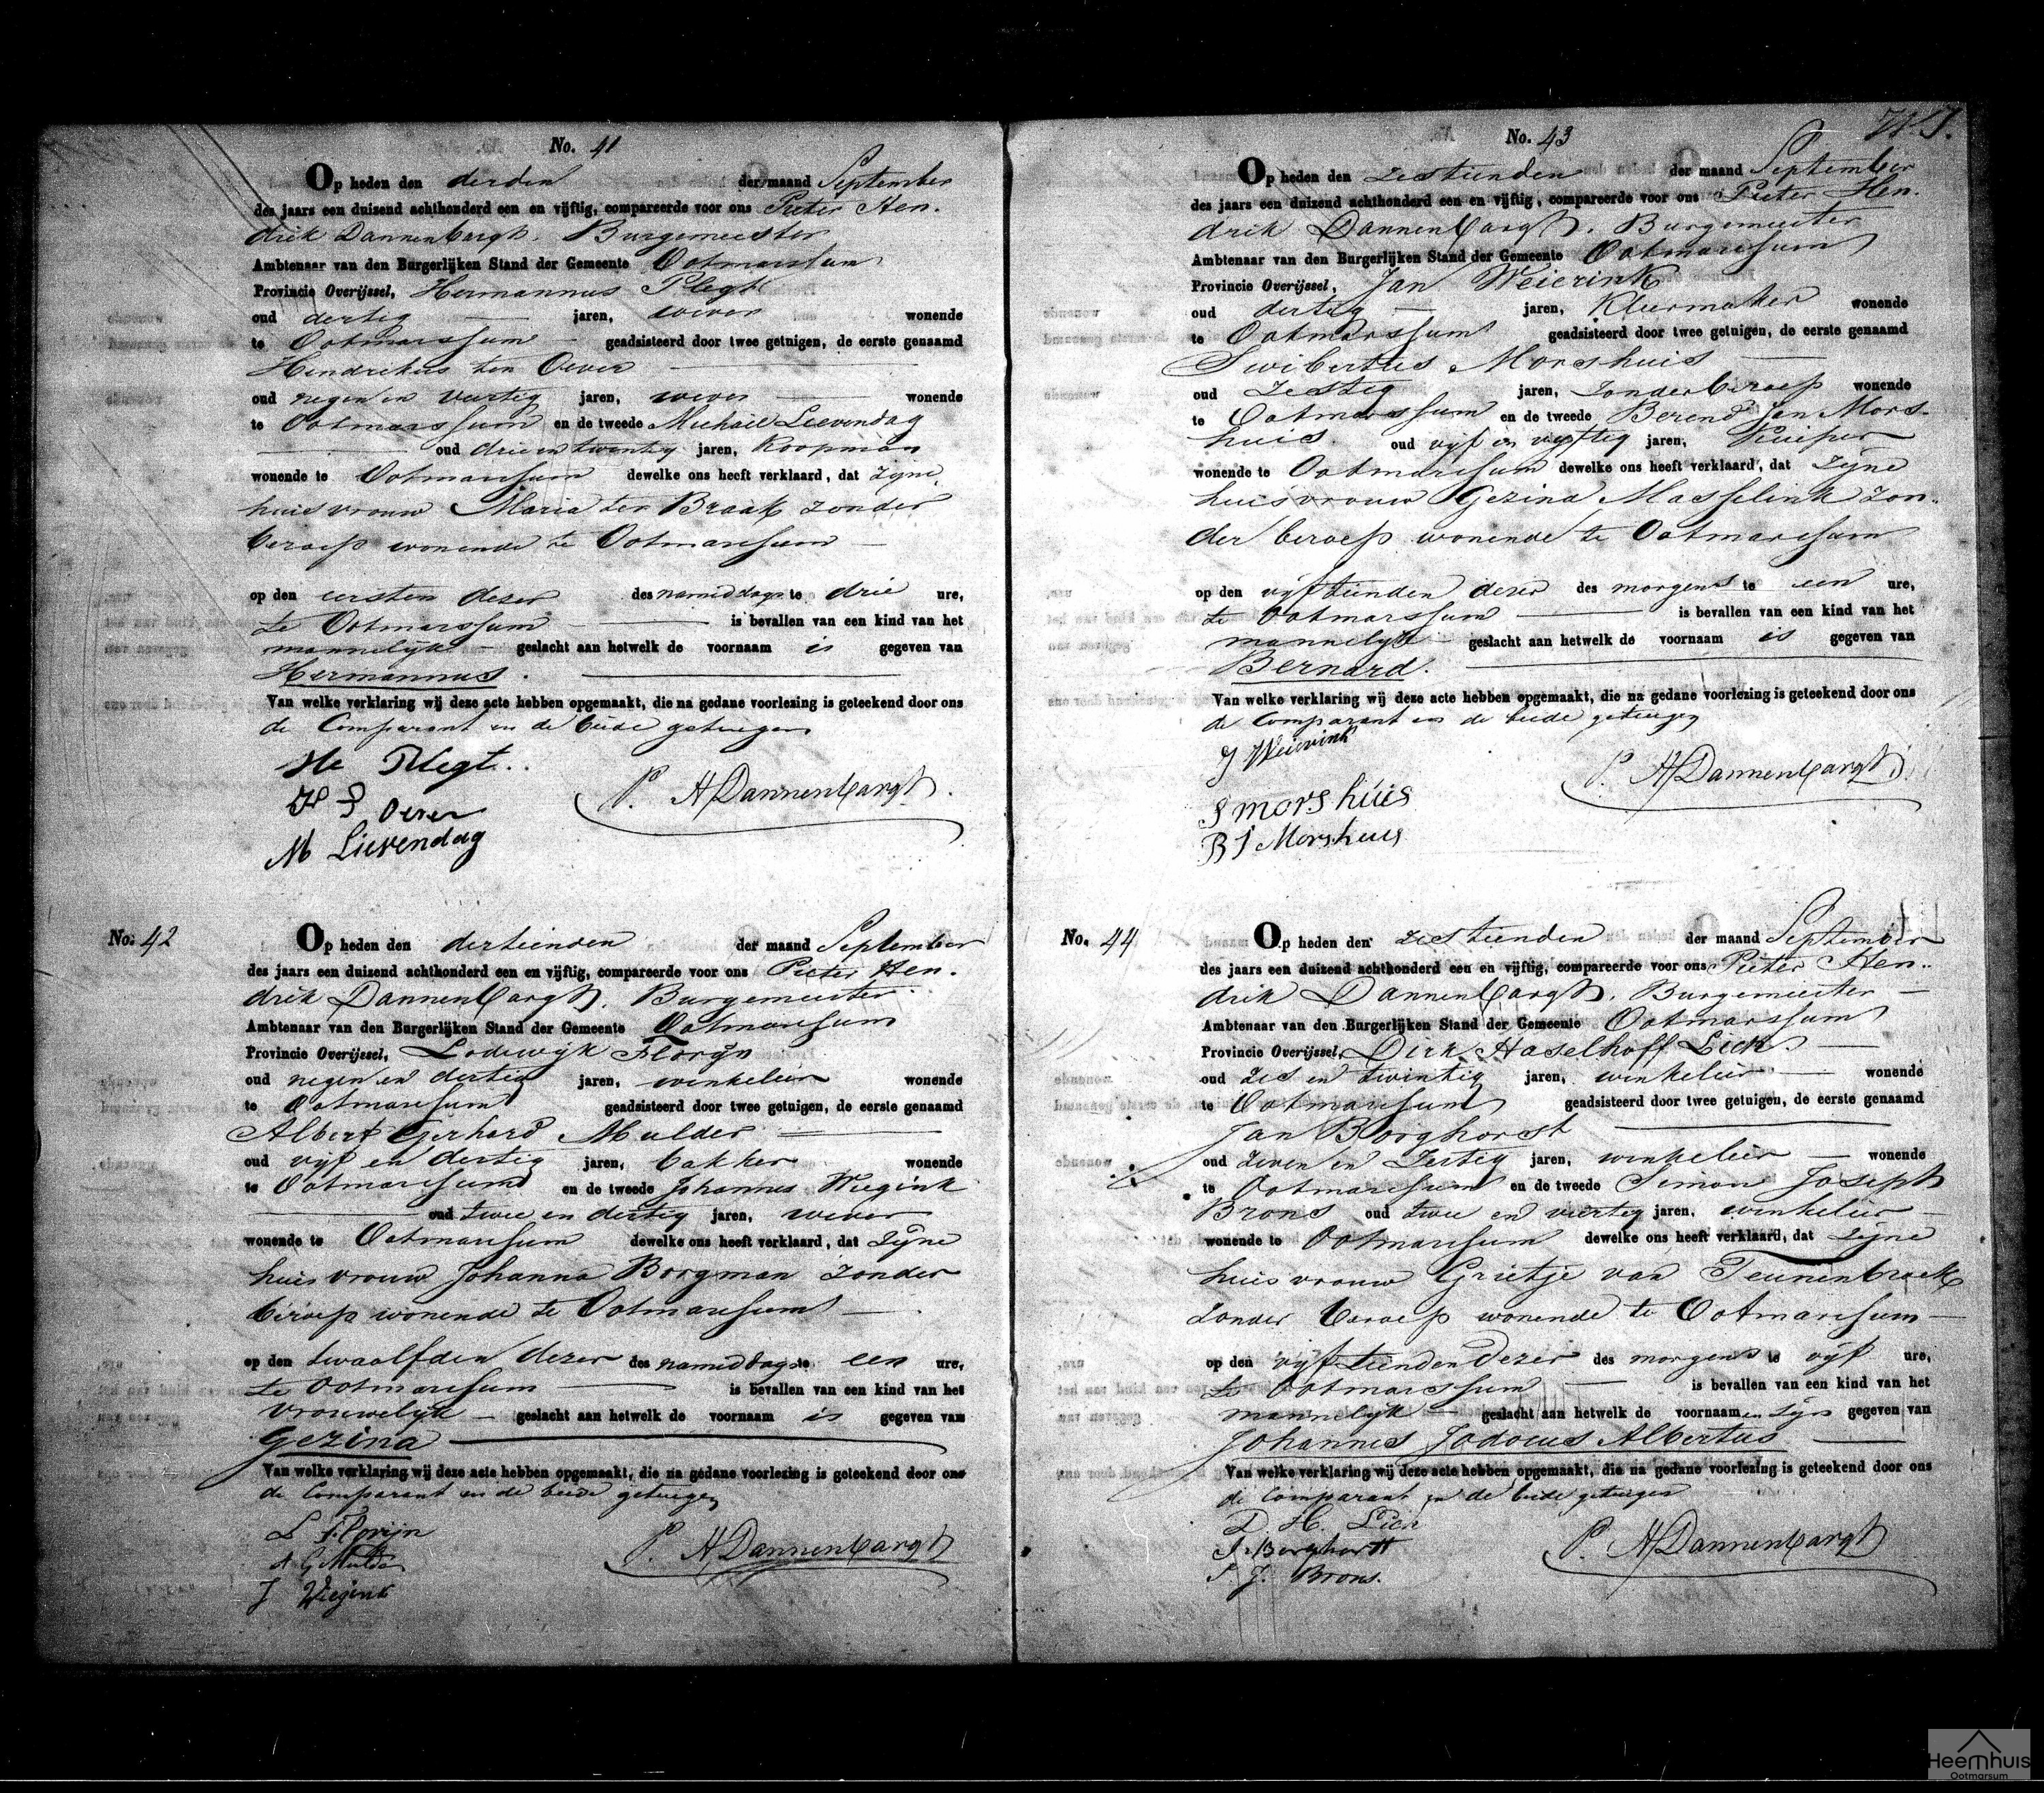 No. 41
Op heden den derden der maand September
des jaars een duizend achthonderd een en vijftig, compareerde voor ons Pieter Hen-
drik Dannenbargh. Burgemeester
Ambtenaar van den Burgerlijken Stand der Gemeente Ootmarssum
Provincie Overijssel, Hermannus Plegt
oud dertig jaren, wever wonende
te Ootmarssum geadsisteerd door twee getuigen, de eerste genaamd
Hendrikus ten Oever
oud negen en veertig jaren, wever wonende
te Ootmarssum en de tweede Michael Lievendag
oud drie en twentig jaren, Koopman
wonende te Ootmarssum dewelke ons heeft verklaard, dat zijne
huisvrouw Maria ter Braak zonder
beroep wonende te Ootmarssum
op den eersten dezer des namiddags te drie ure,
te Ootmarssum is bevallen van een kind van het
mannelijk geslacht aan hetwelk de voornaam is gegeven van
Hermannus.
Van welke verklaring wij deze acte hebben opgemaakt, die na gedane voorlezing is geteekend door ons
de Comparant en de beide getuigen
He Plegt.
H T Oever
M Lievendag
P. H Dannenbargh.
No. 42
Op heden den dertienden der maand September
des jaars een duizend achthonderd een en vijftig, compareerde voor ons Pieter Hen-
drik Dannenbargh. Burgemeester
Ambtenaar van den Burgerlijken Stand der Gemeente Ootmarssum
Provincie Overijssel, Lodewijk Florijn
oud negen en dertig jaren, winkelier wonende
te Ootmarssum geadsisteerd door twee getuigen, de eerste genaamd
Albert Gerhard Mulder
oud vijf en dertig jaren, bakker wonende
te Ootmarssum en de tweede Johannes Wiegink
oud twee en dertig jaren, wever
wonende te Ootmarssum dewelke ons heeft verklaard, dat zijne
huisvrouw Johanna Borgman zonder
beroep wonende te Ootmarssum
op den twaalfden dezer des namiddags te een ure,
te Ootmarssum is bevallen van een kind van het
vrouwelijk geslacht aan hetwelk de voornaam is gegeven van
Gezina
Van welke verklaring wij deze acte hebben opgemaakt, die na gedane voorlezing is geteekend door ons
de Comparant en de beide getuigen
L Florijn
A G Mulder
J Wiegink
P. H Dannenbargh
No. 43
Op heden den zestienden der maand September
des jaars een duizend achthonderd een en vijftig, compareerde voor ons Pieter Hen-
drik Dannenbargh. Burgemeester
Ambtenaar van den Burgerlijken Stand der Gemeente Ootmarssum
Provincie Overijssel, Jan Weierink
oud dertig jaren, Kleermaker wonende
te Ootmarssum geadsisteerd door twee getuigen, de eerste genaamd
Swibertus Morshuis
oud zestig jaren, zonder beroep wonende
te Ootmarssum en de tweede Berend Jan Mors-
huis. oud vijf en vijftig jaren, Kuiper
wonende te Ootmarssum dewelke ons heeft verklaard, dat zijne
huisvrouw Gezina Masselink zon-
der beroep wonende te Ootmarssum
op den vijftienden dezer des morgens te een ure,
te Ootmarssum is bevallen van een kind van het
mannelijk geslacht aan hetwelk de voornaam is gegeven van
Bernard.
Van welke verklaring wij deze acte hebben opgemaakt, die na gedane voorlezing is geteekend door ons
de Comparant en de beide getuigen
J Weierink
S morshuis
B J Morshuis
P. H Dannenbargh
No. 44
Op heden den zestienden der maand September
des jaars een duizend achthonderd een en vijftig, compareerde voor ons Pieter Hen-
drik Dannenbargh. Burgemeester
Ambtenaar van den Burgerlijken Stand der Gemeente Ootmarssum
Provincie Overijssel, Dirk Haselhoff Lich.
oud zes en twintig jaren, winkelier wonende
te Ootmarssum geadsisteerd door twee getuigen, de eerste genaamd
Jan Borghorst
oud zeven en zestig jaren, winkelier wonende
te Ootmarssum en de tweede Simon Joseph
Brons oud twee en veertig jaren, winkelier
wonende te Ootmarssum dewelke ons heeft verklaard, dat zijne
huisvrouw Grietje van Teunenbroek
zonder beroep wonende te Ootmarssum
op den vijftienden dezer des morgens te vijf ure,
te Ootmarssum is bevallen van een kind van het
mannelijk geslacht aan hetwelk de voornaamen zijn gegeven van
Johannes Jodocus Albertus
Van welke verklaring wij deze acte hebben opgemaakt, die na gedane voorlezing is geteekend door ons
de Comparant en de beide getuigen
D. H. Lich
J. Borghorst
S. J. Brons.
P. H Dannenbargh
Heemhuis
Ootmarsum